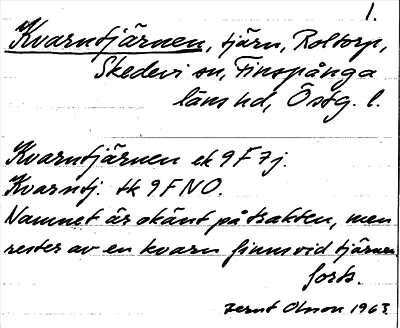 1.
Kvarntjärnen, tjärn, Roltorp,
Skedevi sn, Finspånga
läns hd, Östg. l.
Kvarntjärnen ek 9F7j.
Kvarntj. tk 9F NO.
Namnet är okänt på trakten, men
rester av en kvarn finns vid tjärnen
forts.
Bernt Olsson 1963